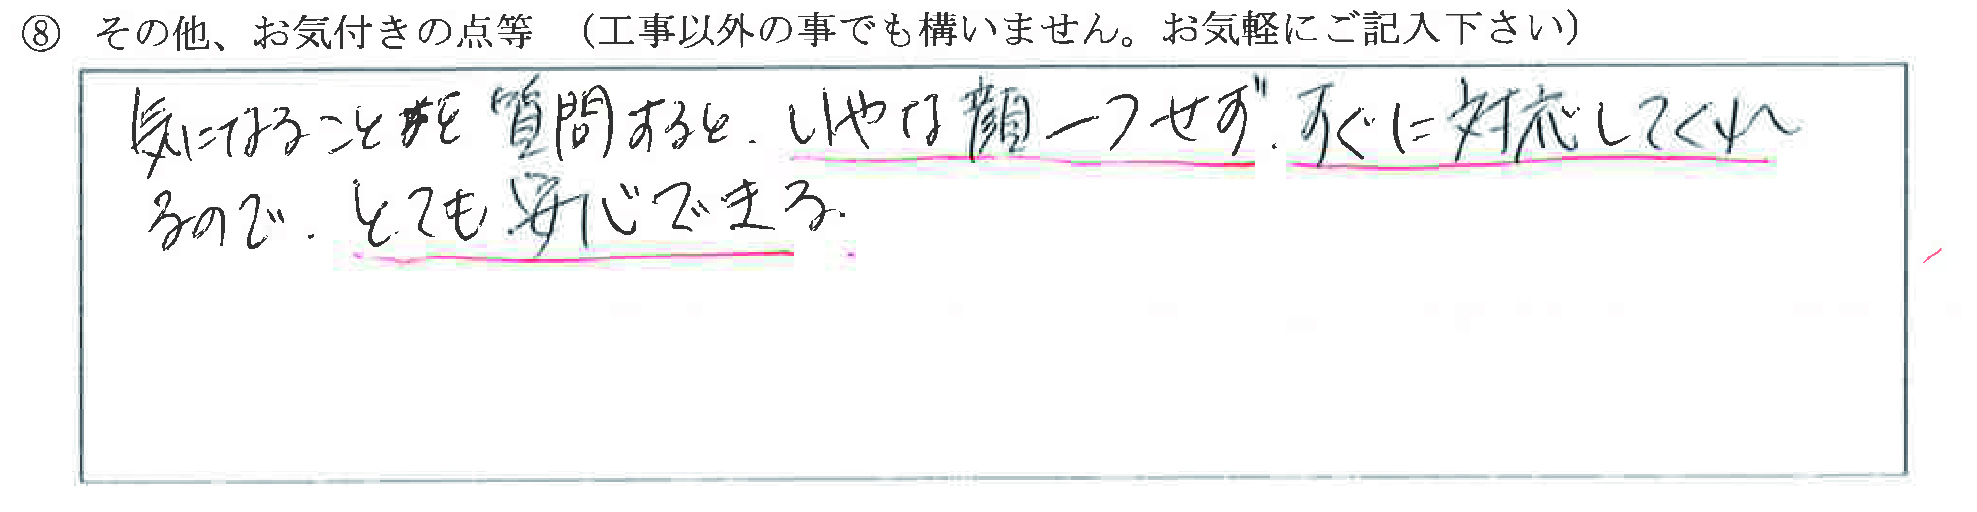 ⑧ その他、お気付きの点等 （工事以外の事でも構いません。お気軽にご記入下さい）
気になることを質問すると、いやな顔一つせず、すぐに対応してくれ
るので、とても安心できる。